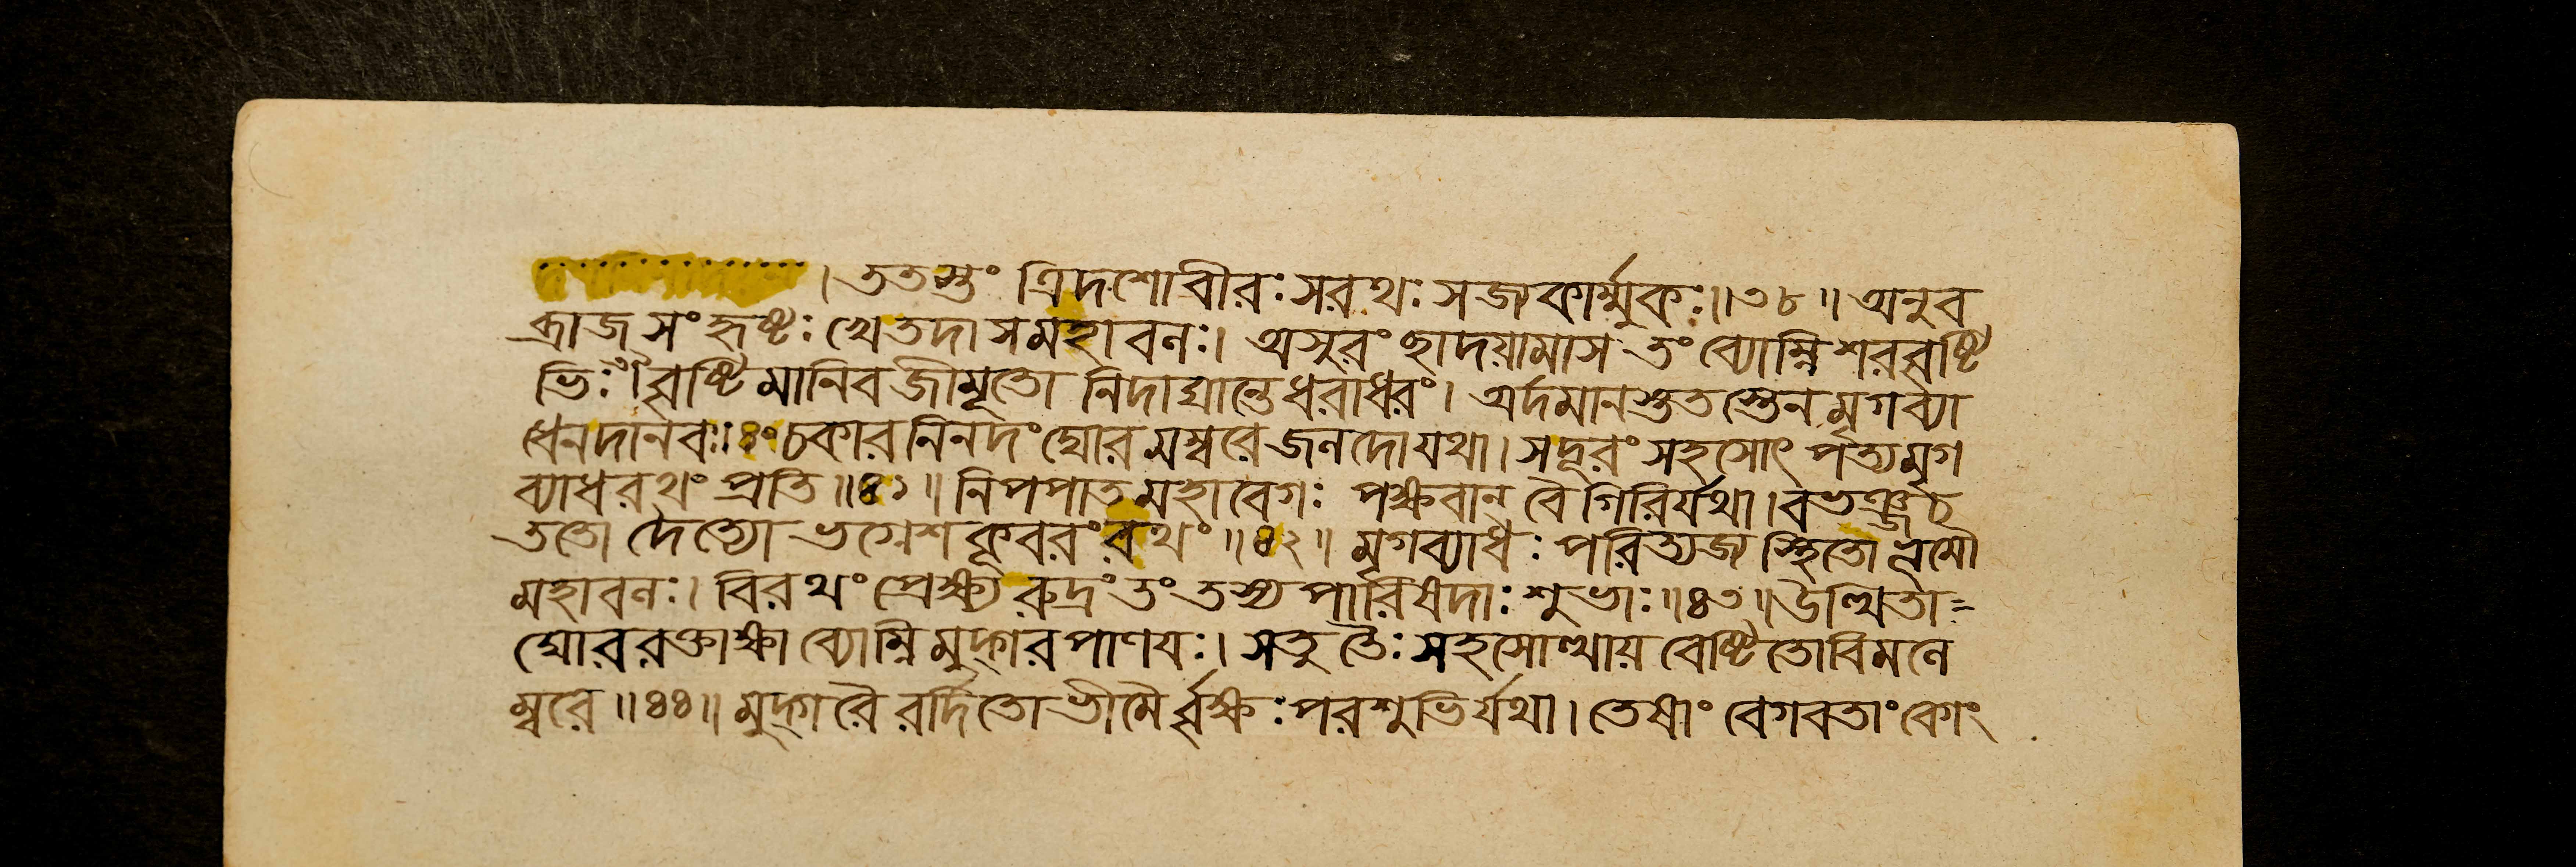 । ততস্তং ত্রিদশোবীরঃ সরথঃ সজ্যকার্ম্মুকঃ॥৩৮॥ অনুব
ব্রাজ সংহৃষ্টঃ খে তদা সমহাবলঃ। অসুরং ছাদয়ামাস তং ব্যোম্নি শরবৃষ্টি
ভিঃ বৃষ্টিমানিব জীমূতো নিদাঘান্তে ধরাধরং। অর্দমানস্তুতস্তেন মৃগব্যা
ধেন দানবঃ॥৪০ চকার নিনদং ঘোরমম্বরে জলদো যথা। স দূরং সহসোৎপত্য মৃগ
ব্যাধরথং প্রতি॥৪১॥ নিপপাত মহাবেগঃ পক্ষবান্ বৈ গিরির্যথা। বভঞ্জ চ
ততো দৈত্যো ভগ্নেশকূবরং রথং॥৪২॥ মৃগব্যাধঃ পরিত্যজ্য স্থিতো ভূমৌ
মহাবলঃ। বিরথং প্রেক্ষ্য রুদ্রং তং তস্য পারিষদাঃ শুভাঃ॥৪৩॥ উত্থিতা=
ঘোররক্তাক্ষা ব্যোম্নি মুদ্গরপাণয়ঃ। স তু তৈঃ সহসোত্থায় বেষ্টিতো বিমলে
ম্বরে॥৪৪॥ মুদ্গরৈরর্দিতো ভীমৈর্বৃক্ষঃ পরশুভির্যথা। তেষাং বেগবতাং বেগং